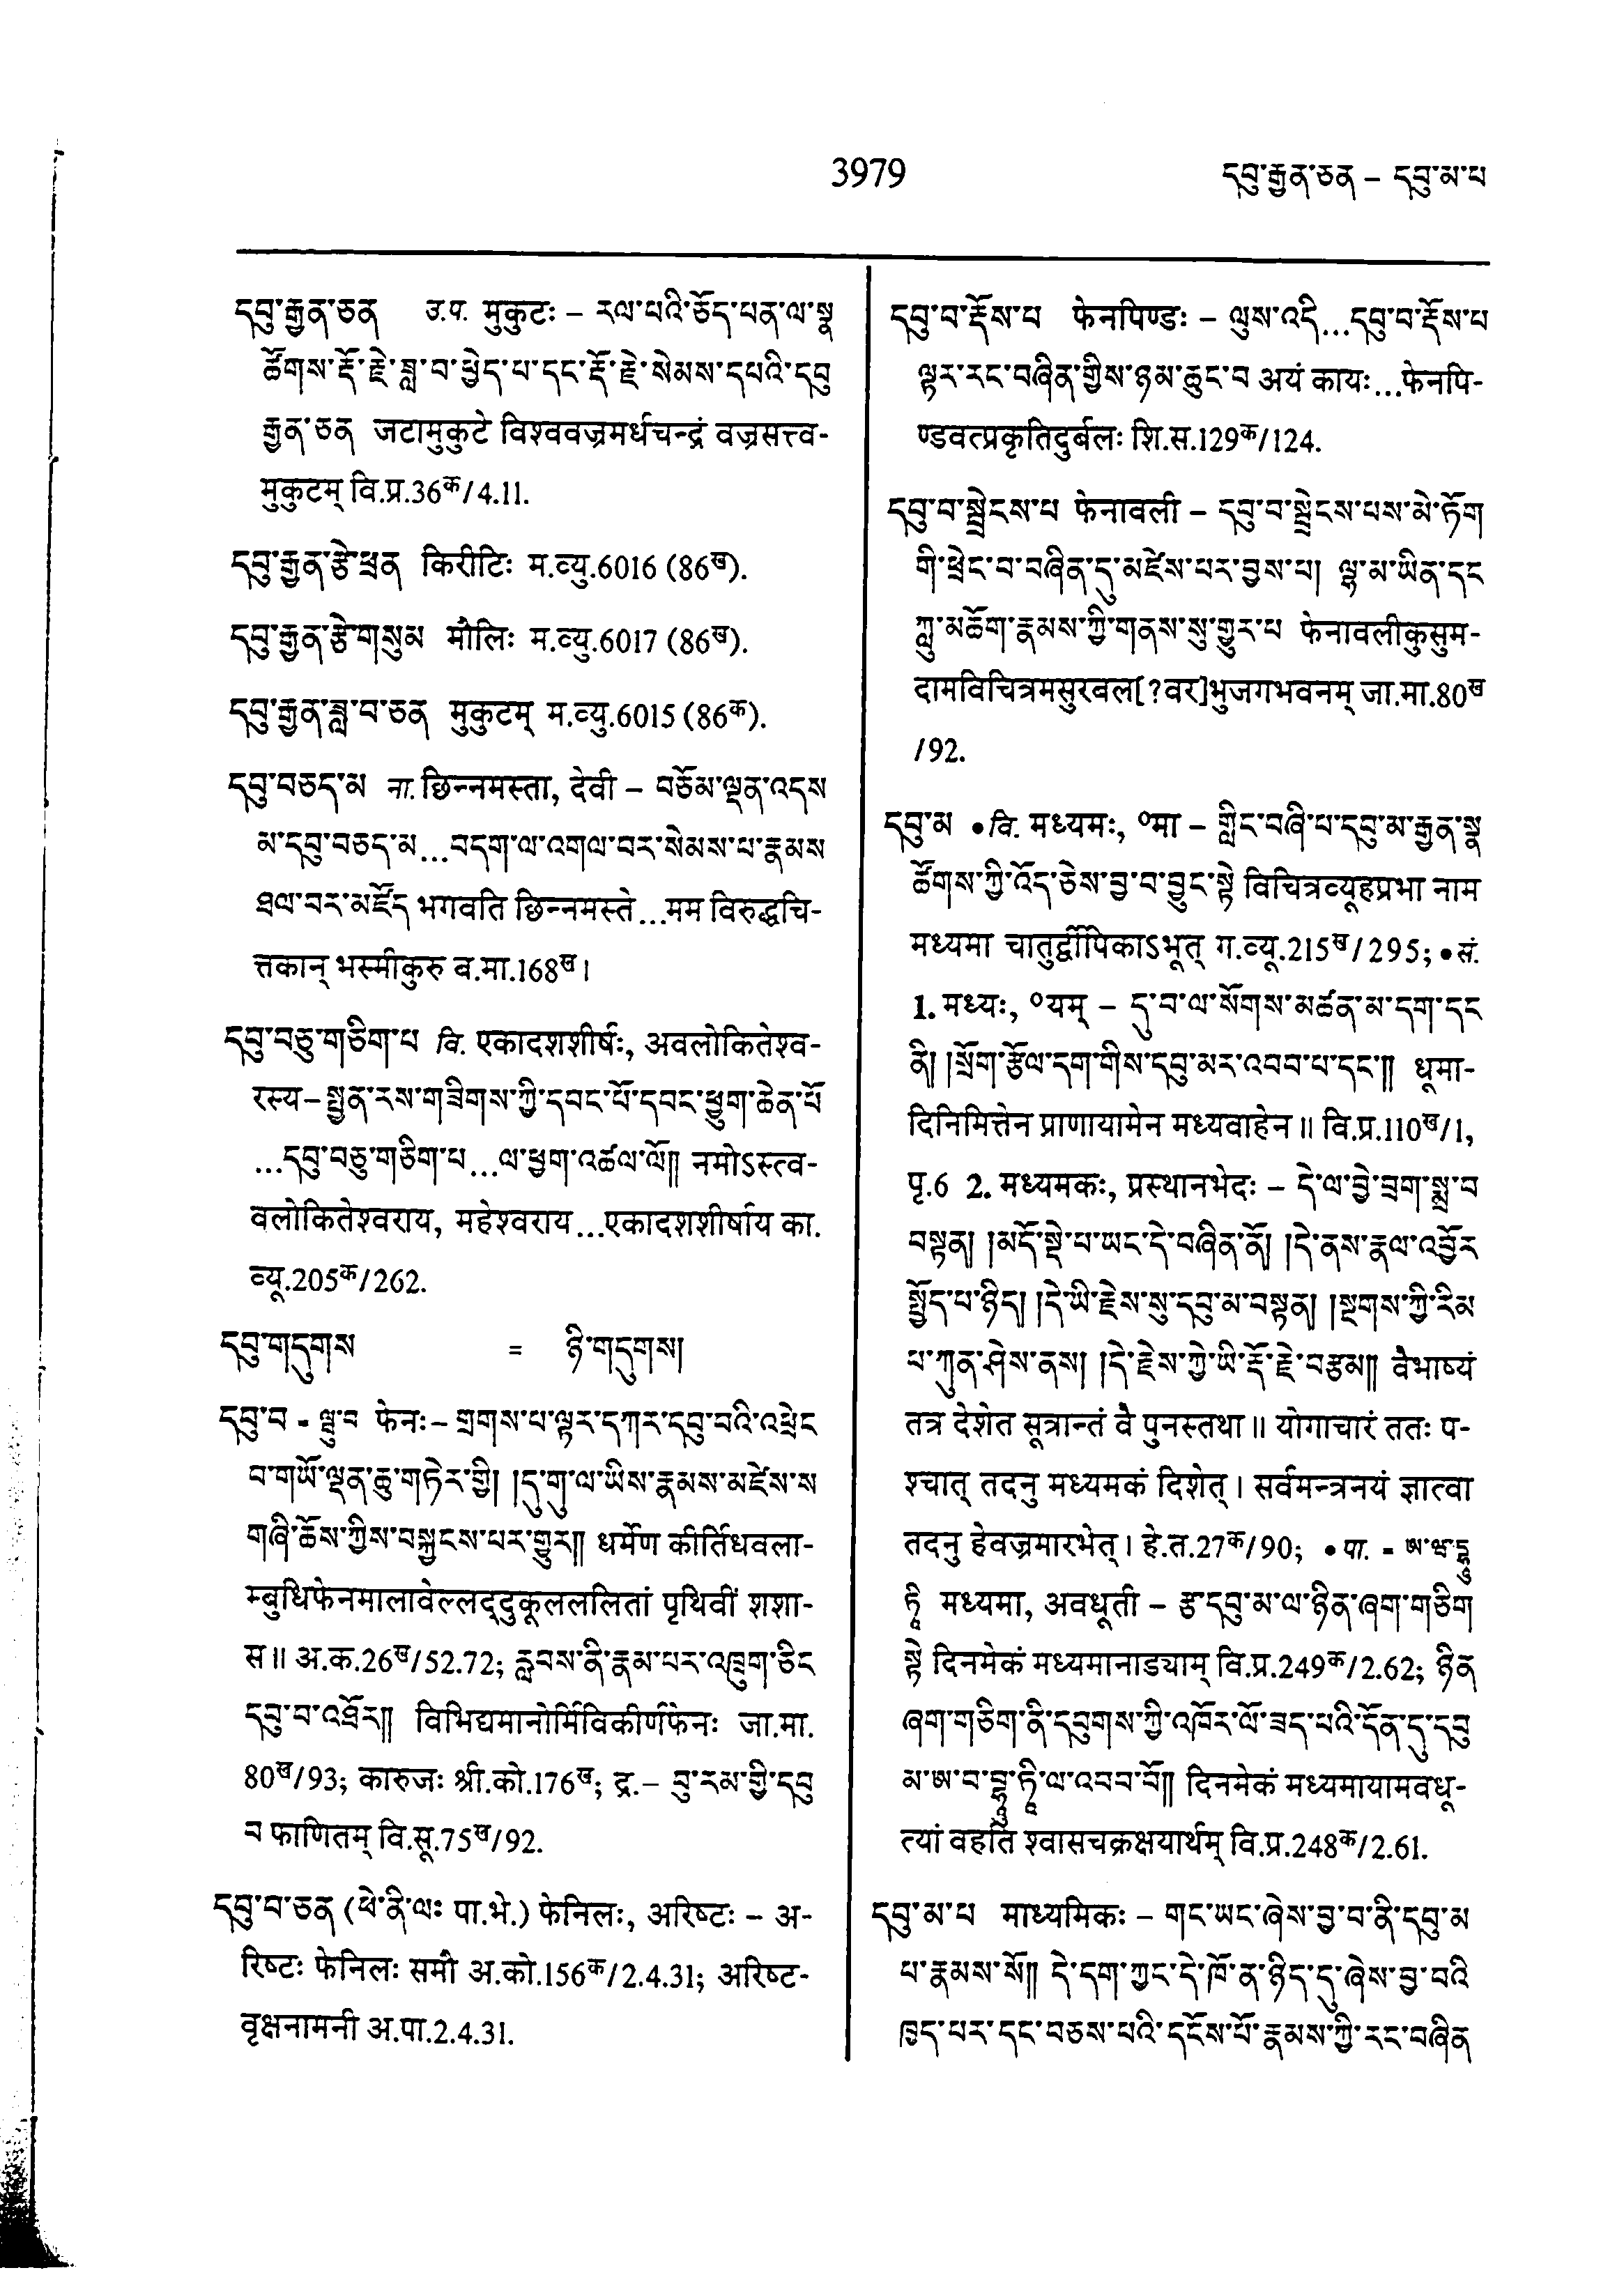 3979
དབུ་རྒྱན་ཅན – དབུ་མ་པ
དབུ་རྒྱན་ཅན उ.प. मुकुटः – རལ་པའི་ཅོད་པན་ལ་སྣ
ཚོགས་རྡོ་རྗེ་ཟླ་བ་ཕྱེད་པ་དང་རྡོ་རྗེ་སེམས་དཔའི་དབུ
རྒྱན་ཅན जटामुकुटे विश्ववज्रमर्धचन्द्रं वज्रसत्त्व-
मुकुटम् वि.प्र.36क/4.11.
དབུ་རྒྱན་རྩེ་ཕྲན किरीटिः म.व्यु.6016 (86ख).
དབུ་རྒྱན་རྩེ་གསུམ मौलिः म.व्यु.6017 (86ख).
དབུ་རྒྱན་ཟླ་བ་ཅན मुकुटम् म.व्यु.6015 (86क).
དབུ་བཅད་མ ना. छिन्नमस्ता, देवी – བཅོམ་ལྡན་འདས
མ་དབུ་བཅད་མ...བདག་ལ་འགལ་བར་སེམས་པ་རྣམས
ཐལ་བར་མཛོད भगवति छिन्नमस्ते...मम विरुद्धचि-
त्तकान् भस्मीकुरु ब.मा.168ख।
དབུ་བཅུ་གཅིག་པ वि. एकादशशीर्षः, अवलोकितेश्व-
रस्य– སྤྱན་རས་གཟིགས་ཀྱི་དབང་པོ་དབང་ཕྱུག་ཆེན་པོ
...དབུ་བཅུ་གཅིག་པ...ལ་ཕྱག་འཚལ་ལོ།། नमोऽस्त्व-
वलोकितेश्वराय, महेश्वराय...एकादशशीर्षाय का.
व्यू.205क/262.
དབུ་གདུགས = ཉི་གདུགས།
དབུ་བ = ལྦུ་བ फेनः– གྲགས་པ་ལྟར་དཀར་དབུ་བའི་འཕྲེང
བ་གཡོ་ལྡན་ཆུ་གཏེར་གྱི། །དུ་གུ་ལ་ཡིས་རྣམས་མཛེས་ས
གཞི་ཆོས་ཀྱིས་བསྐྱངས་པར་གྱུར།། धर्मेण कीर्तिधवला-
म्बुधिफेनमालावेल्लद्दुकूलललितां पृथिवीं शशा-
स॥ अ.क.26ख/52.72; རླབས་ནི་རྣམ་པར་འཁྲུག་ཅིང
དབུ་བ་འཐོར།། विभिद्यमानोर्मिविकीर्णफेनः जा.मा.
80ख/93; कारुजः श्री.को.176ख; द्र.– བུ་རམ་གྱི་དབུ
བ फाणितम् वि.सू.75ख/92.
དབུ་བ་ཅན (ཕེ་ནི་ལཿ पा.भे.) फेनिलः, अरिष्टः – अ-
रिष्टः फेनिलः समौ अ.को.156क/2.4.31; अरिष्ट-
वृक्षनामनी अ.पा.2.4.31.
དབུ་བ་རྡོས་པ फेनपिण्डः – ལུས་འདི...དབུ་བ་རྡོས་པ
ལྟར་རང་བཞིན་གྱིས་ཉམ་ཆུང་བ अयं कायः...फेनपि-
ण्डवत्प्रकृतिदुर्बलः शि.स.129क/124.
དབུ་བ་སྦྲེངས་པ फेनावली – དབུ་བ་སྦྲེངས་པས་མེ་ཏོག
གི་ཕྲེང་བ་བཞིན་དུ་མཛེས་པར་བྱས་པ། ལྷ་མ་ཡིན་དང
ཀླུ་མཆོག་རྣམས་ཀྱི་གནས་སུ་གྱུར་པ फेनावलीकुसुम-
दामविचित्रमसुरवल[?वर]भुजगभवनम् जा.मा.80ख
/92.
དབུ་མ •वि. मध्यमः, ०मा – གླིང་བཞི་པ་དབུ་མ་རྒྱན་སྣ
ཚོགས་ཀྱི་འོད་ཅེས་བྱ་བ་བྱུང་སྟེ विचित्रव्यूहप्रभा नाम
मध्यमा चातुर्द्वीपिकाऽभूत् ग.व्यू.215ख/295; •सं.
1. मध्यः, ०यम् – དུ་བ་ལ་སོགས་མཚན་མ་དག་དང
ནི། །སྲོག་རྩོལ་དག་གིས་དབུ་མར་འབབ་པ་དང་།། धूमा-
दिनिमित्तेन प्राणायामेन मध्यवाहेन॥ वि.प्र.110ख/1,
पृ.6 2. मध्यमकः, प्रस्थानभेदः – དེ་ལ་བྱེ་བྲག་སྨྲ་བ
བསྟན། །མདོ་སྡེ་པ་ཡང་དེ་བཞིན་ནོ། །དེ་ནས་རྣལ་འབྱོར
སྤྱོད་པ་ཉིད། །དེ་ཡི་རྗེས་སུ་དབུ་མ་བསྟན། །སྔགས་ཀྱི་རིམ
པ་ཀུན་ཤེས་ནས། །དེ་རྗེས་ཀྱེ་ཡི་རྡོ་རྗེ་བརྩམ།། वैभाष्यं
तत्र देशेत सूत्रान्तं वै पुनस्तथा॥ योगाचारं ततः प-
श्चात् तदनु मध्यमकं दिशेत्। सर्वमन्त्रनयं ज्ञात्वा
तदनु हेवज्रमारभेत्। हे.त.27क/90; •पा. =
मध्यमा, अवधूती – རྩ་དབུ་མ་ལ་ཉིན་ཞག་གཅིག
སྟེ दिनमेकं मध्यमानाड्याम् वि.प्र.249क/2.62; ཉིན
ཞག་གཅིག་ནི་དབུགས་ཀྱི་འཁོར་ལོ་ཟད་པའི་དོན་དུ་དབུ
མ་ཨ་བ་དྷཱུ་ཏཱི་ལ་འབབ་བོ།། दिनमेकं मध्यमायामवधू-
त्यां वहति श्वासचक्रक्षयार्थम् वि.प्र.248क/2.61.
དབུ་མ་པ माध्यमिकः – གང་ཡང་ཞེས་བྱ་བ་ནི་དབུ་མ
པ་རྣམས་སོ།། དེ་དག་ཀྱང་དེ་ཁོ་ན་ཉིད་དུ་ཞེས་བྱ་བའི
ཁྱད་པར་དང་བཅས་པའི་དངོས་པོ་རྣམས་ཀྱི་རང་བཞིན